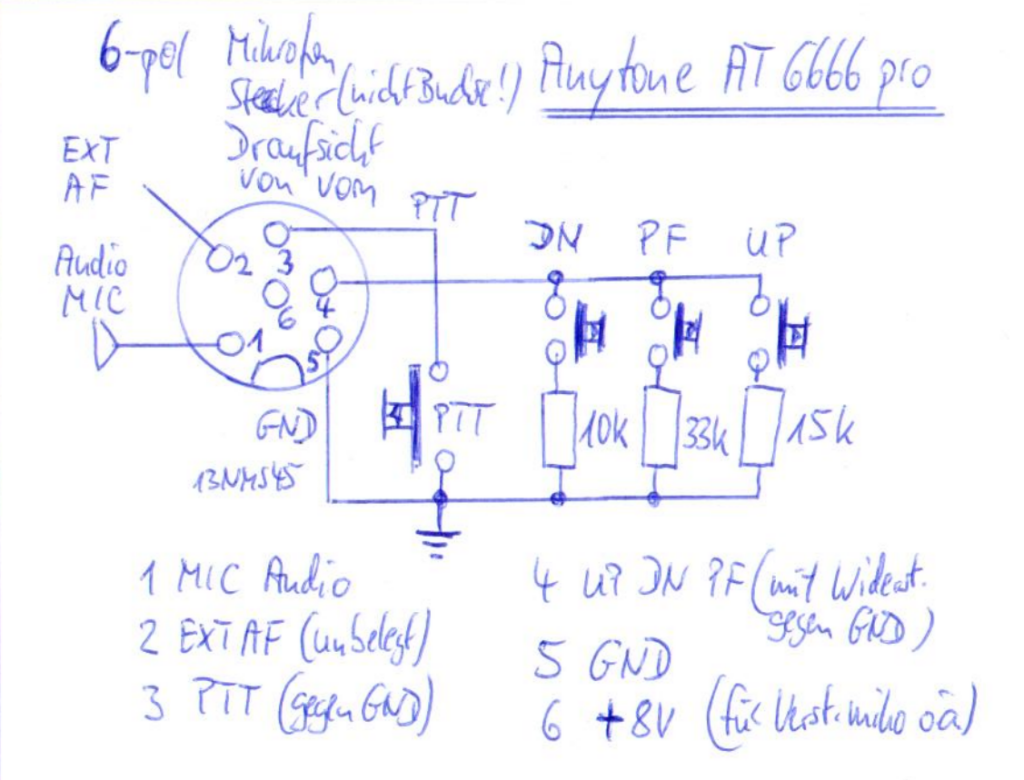 6-pol Mikrofon
Stecker (nicht Buchse!)
Draufsicht
von vorn
Anytone AT 6666 pro
EXT
AF
Audio
MIC
PTT
DN PF UP
2 3 4
6
1 5
GND
13NMS45
PTT
10k 33k 15k
1 MIC Audio
2 EXT AF (unbelegt)
3 PTT (gegen GND)
4 UP DN PF (mit Widerst.
gegen GND)
5 GND
6 +8V (für Verst.miko oä)